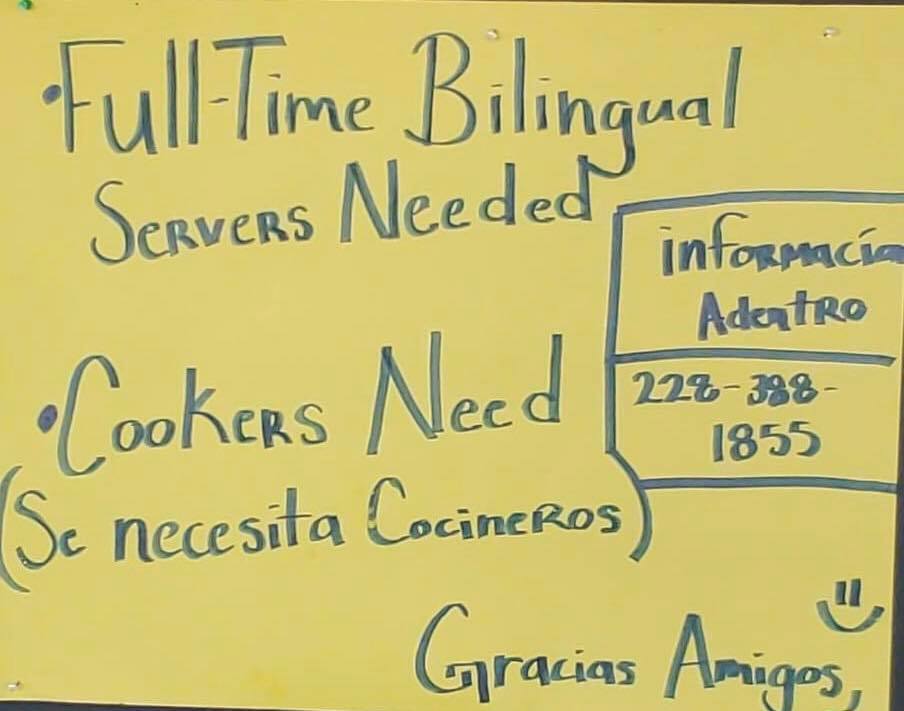 •Full-Time Bilingual
Servers Needed
•Cookers Need
(Se necesita Cocineros)
informacion
Adentro
228-388-
1855
Gracias Amigos,